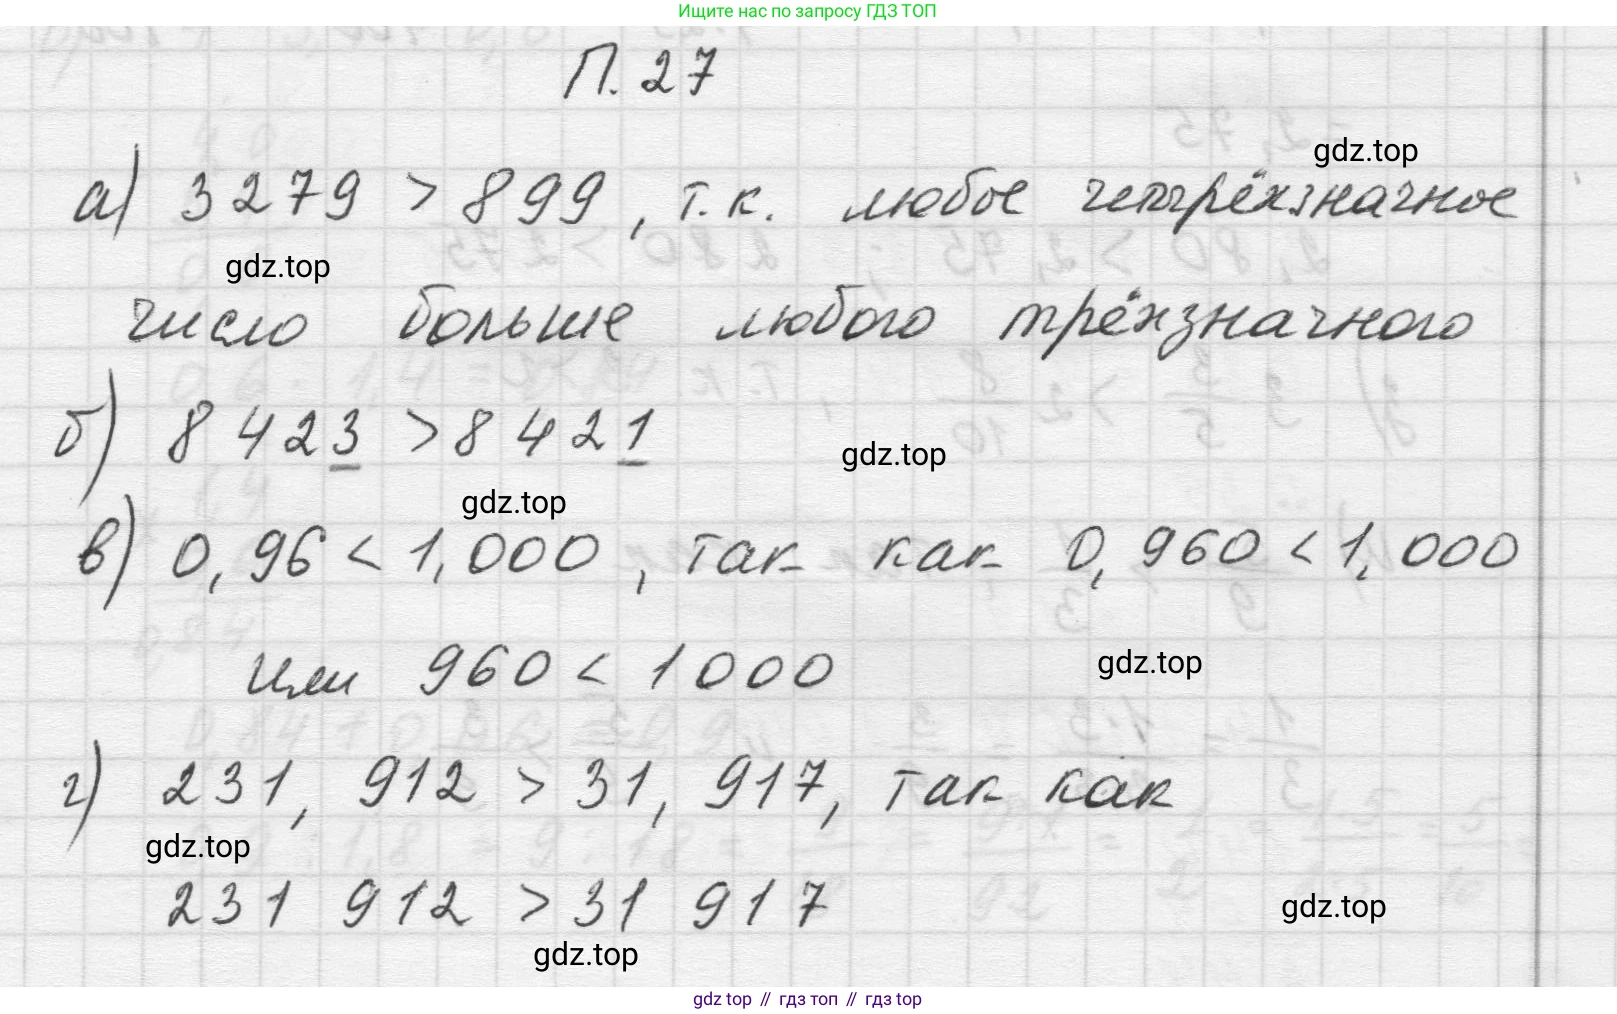 Ищите нас по запросу ГДЗ ТОП
П. 27
gdz.top
а) 3279 > 899, т.к. любое четырёхзначное
gdz.top
число больше любого трёхзначного
б) 8423 > 8421
gdz.top
gdz.top
в) 0,96 < 1,000, так как 0,960 < 1,000
или 960 < 1000
gdz.top
г) 231, 912 > 31, 917, так как
gdz.top
231 912 > 31 917
gdz.top
gdz.top
gdz top // гдз топ // гдз top